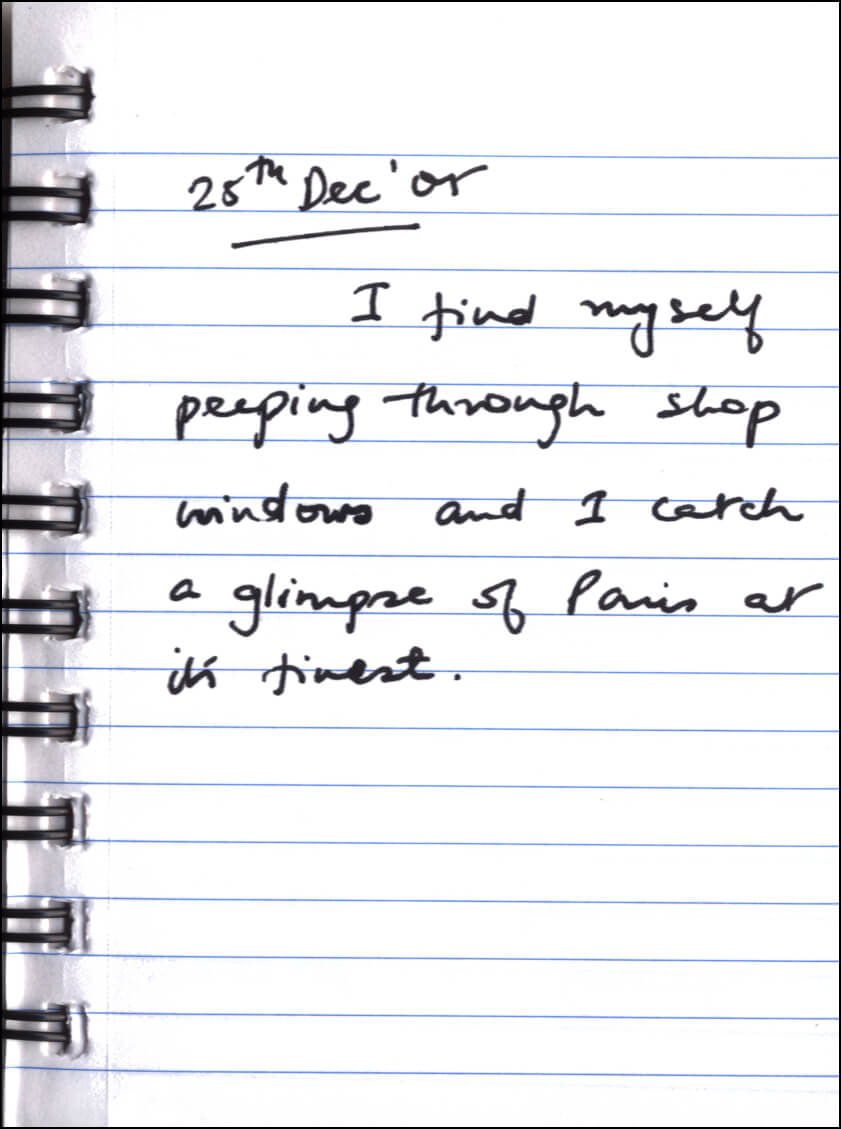 25th Dec'05
I find myself
peeping through shop
windows and I catch
a glimpse of Paris at
it's finest.